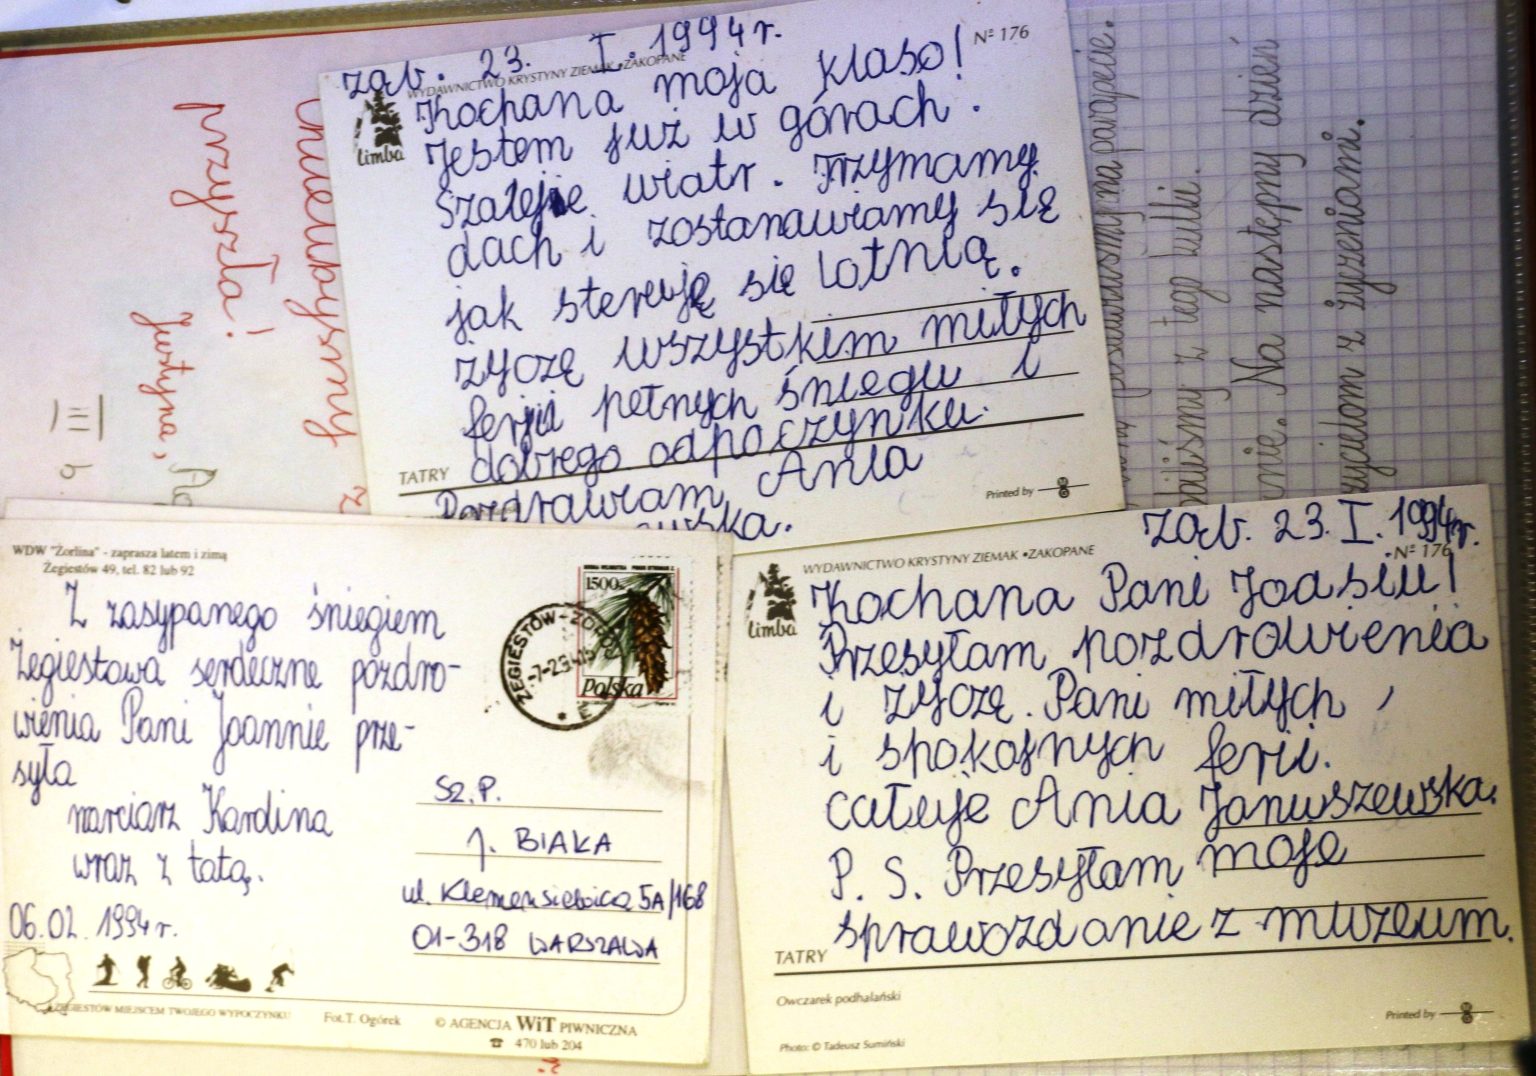 Ząb. 23. I. 1994r.
WYDAWNICTWO KRYSTYNY ZIEMAK •ZAKOPANE
Nº 176
limba
Kochana moja klaso!
Jestem już w górach.
Szaleje wiatr. Trzymamy
dach i zostanawiamy się
jak steruję się lotnią.
Życzę wszystkim miłych
ferii pełnych śniegu i
dobrego odpoczynku.
TATRY
Pozdrawiam Ania
Printed by
przyszła!
Justyna,
na parapecie.
z tego kulki.
Na następny dzień
z życzeniami.
WDW "Zorlina" - zaprasza latem i zimą
Żegiestów 49, tel. 82 lub 92
Z zasypanego śniegiem
Żegiestowa serdeczne pozdro-
wienia Pani Joannie prze-
syła
narciarz Karolina
wraz z tatą.
06.02.1994r.
1500
Polska
ŻEGIESTÓW-ZDRÓJ
Sz.P.
J. BIAKA
ul. Klemensiewicza 5A/168
01-318 WARSZAWA
ŻEGIESTÓW MIEJSCEM TWOJEGO WYPOCZYNKU
Fot.T. Ogórek
© AGENCJA WiT PIWNICZNA
☎ 470 lub 204
Ząb. 23. I. 1994r.
WYDAWNICTWO KRYSTYNY ZIEMAK •ZAKOPANE
Nº 176
limba
Kochana Pani Joasiu!
Przesyłam pozdrowienia
i życzę Pani miłych
i spokojnych ferii.
Całuję Ania Januszewska.
P. S. Przesyłam moje
sprawozdanie z muzeum.
TATRY
Owczarek podhalański
Printed by
Photo: © Tadeusz Sumiński